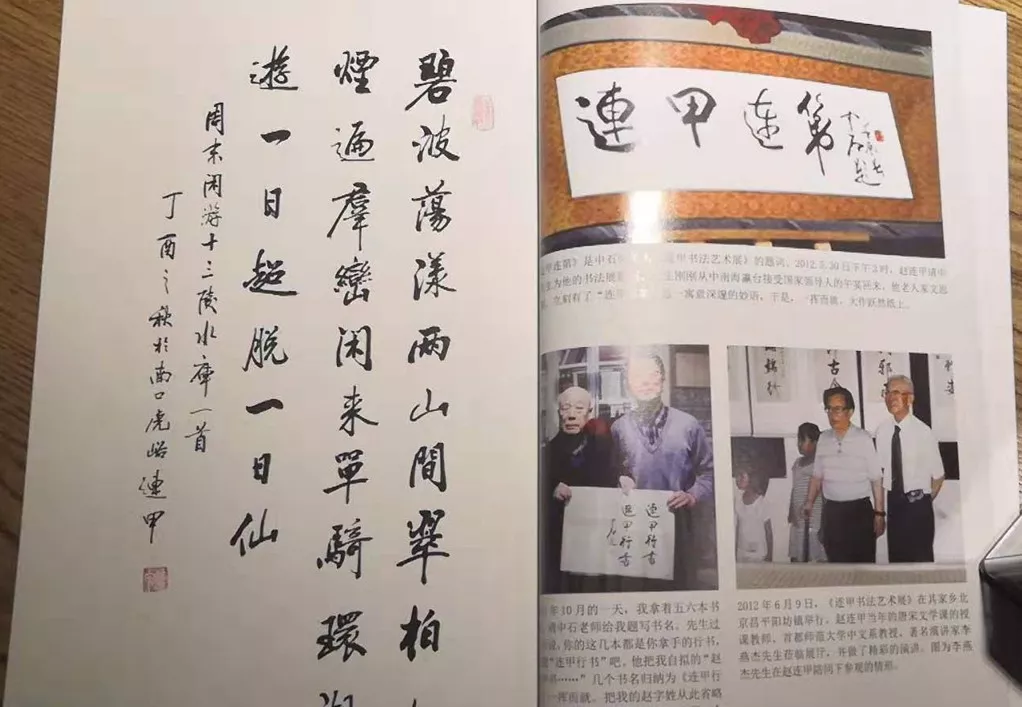 碧波蕩漾兩山間翠柏
煙遍羣巒闲来單騎環
遊一日超脱一日仙
周末闲游十三陵水库一首
丁酉之秋於南口虎峪連甲
連甲連第
甲连第》是中石
《连甲书法艺术展》的题词。2012.5.30日下午2时，赵连甲请中
生为他的书法展
刚刚从中南海瀛台接受国家领导人的午宴回来，他老人家文思
立刻有了“连甲
寓意深邃的妙语，于是，一挥而就，大作跃然纸上。
連甲行書
連甲行書
古今
年10月的一天，我拿着五六本书
请中石老师给我题写书名。先生过
说，你的这几本都是你拿手的行书，
“连甲行书”吧。他把我自拟的“赵
……”几个书名归纳为《连甲行
一挥而就。把我的赵字姓从此省略
2012年6月9日，《连甲书法艺术展》在其家乡北
京昌平阳坊镇举行。赵连甲当年的唐宋文学课的授
课教师，首都师范大学中文系教授，著名演讲家李
燕杰先生莅临展厅，并做了精彩的演讲。图为李燕
杰先生在赵连甲陪同下参观的情形。